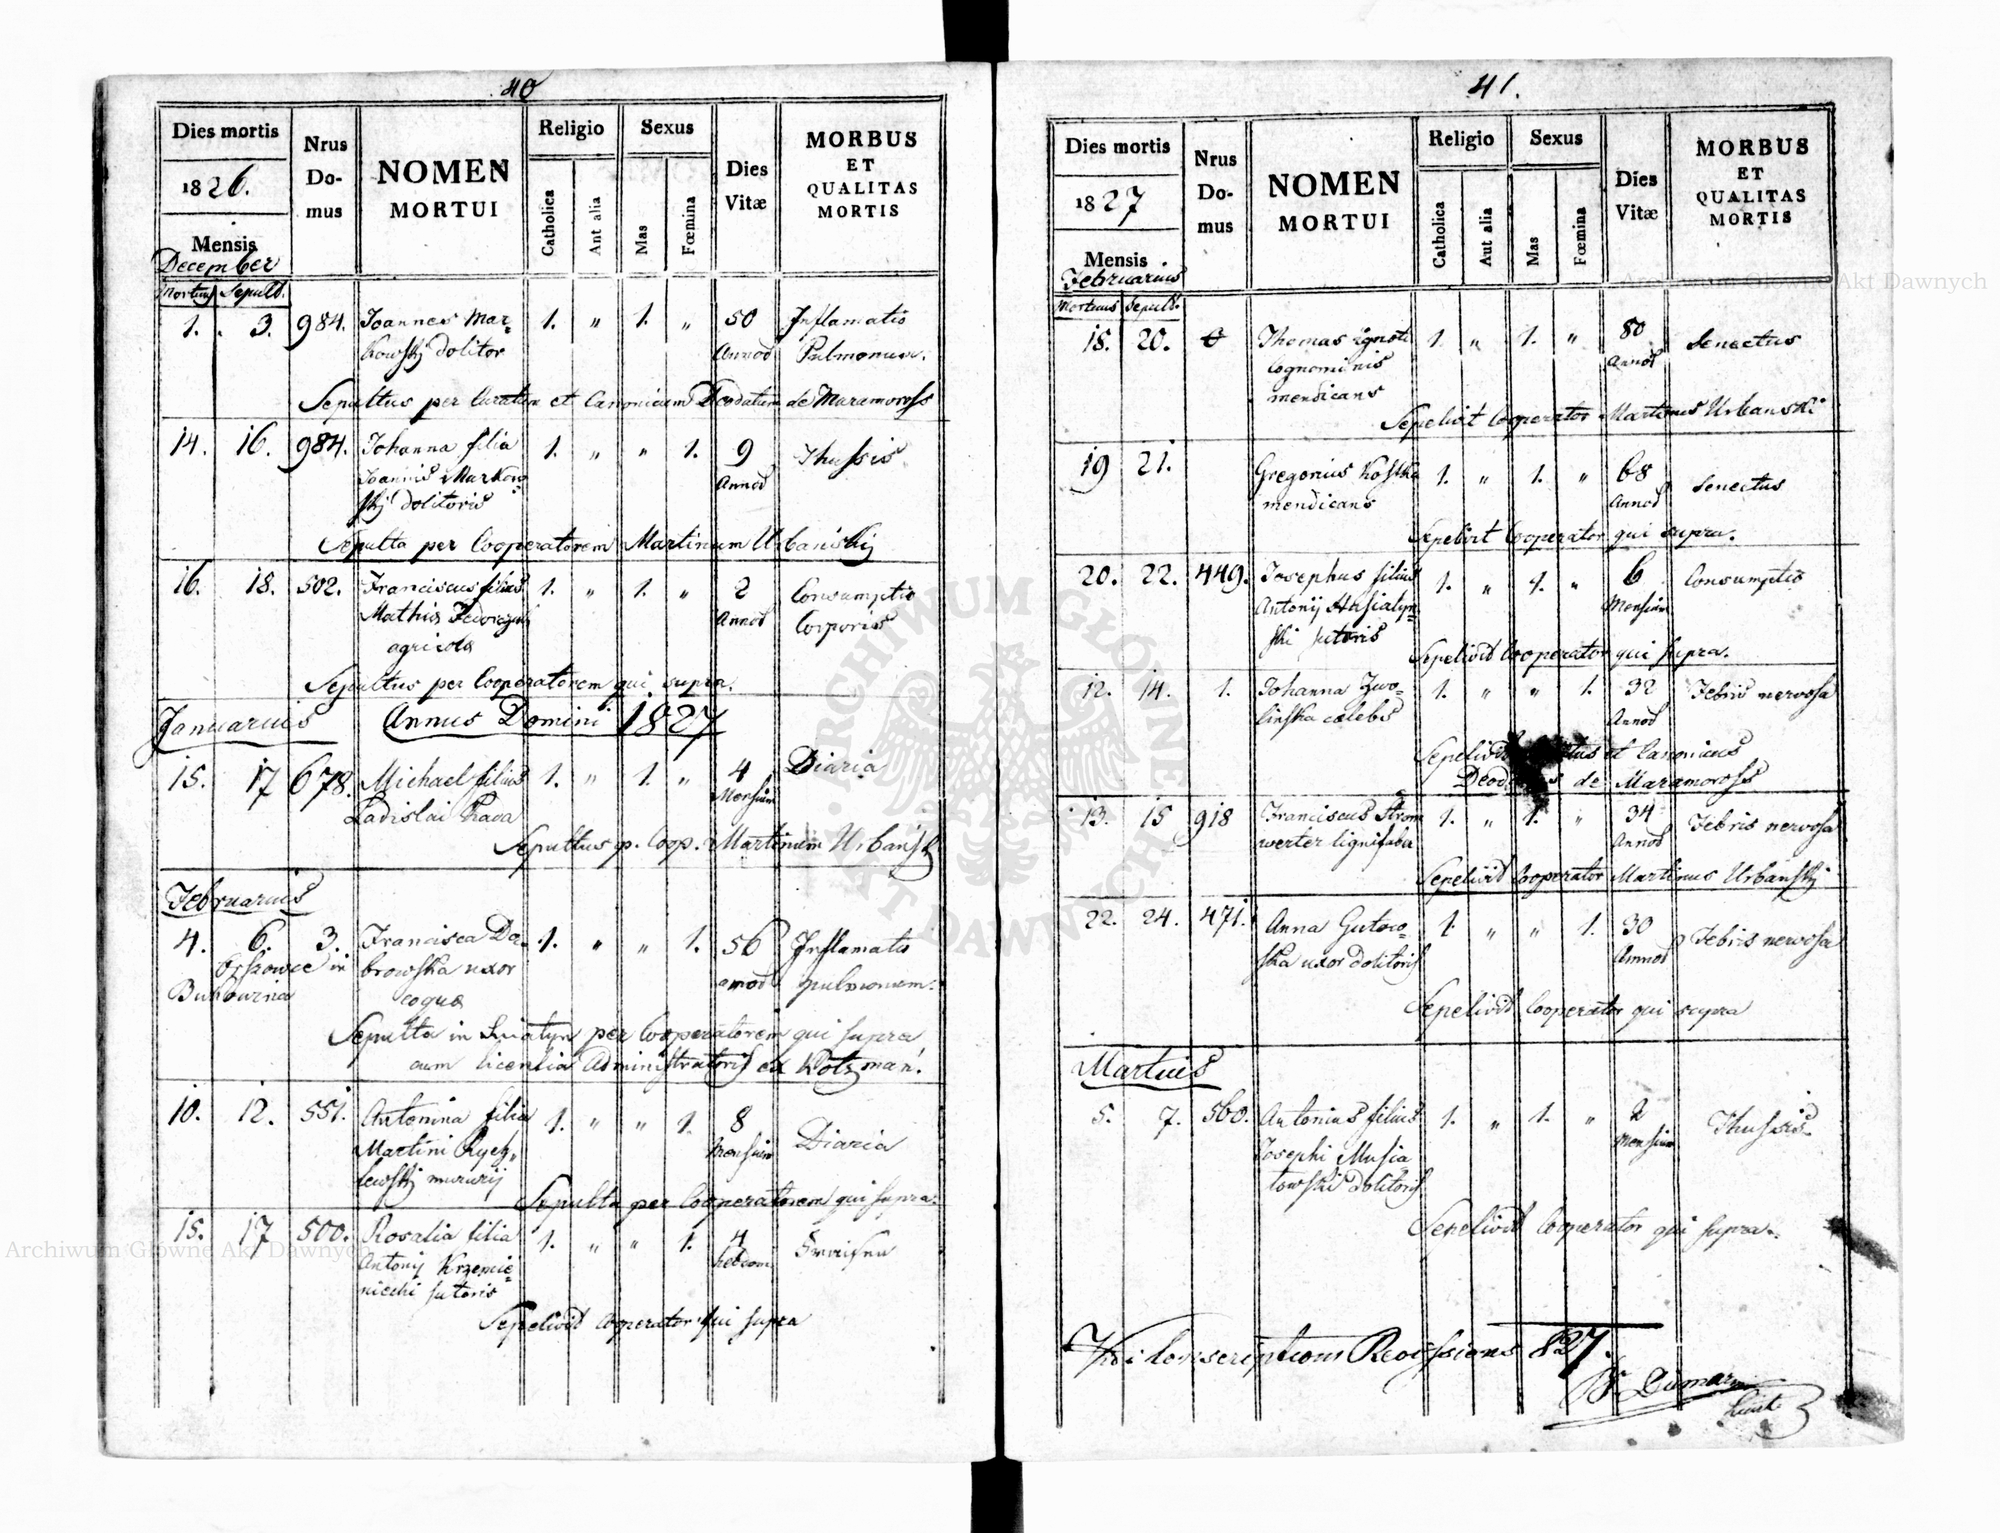 40
Dies mortis
1826.
Mensis
December
Mortuus Sepult.
Nrus Domus
NOMEN
MORTUI
Religio
Catholica
Aut alia
Sexus
Mas
Fœmina
Dies Vitæ
MORBUS
ET
QUALITAS
MORTIS
1. 3. 984. Joannes Mar- 1. " 1. " 50 Inflamatio
kowskj dolitor Annor Pulmonum.
Sepultus per Curatum et Canonicum Deodatum de Maramoross
14. 16. 984. Johanna filia 1. " " 1. 9 Thussis
Joannis Markow- Annor
skj dolitoris
Sepulta per Cooperatorem Martinum Urbanskj
16. 18. 502. Franciscus filius 1. " 1. " 2 Consumptio
Mathia Annor Corporis
agricola
Sepultus per Cooperatorem qui supra.
Januarius Annus Domini 1827
15. 17 678. Michael filius 1. " 1. " 4 Diaria
Ladislai Mensium
Sepultus p. Coop. Martinum Urbansk
Februarius
4. 6. 3. Francisca Do- 1. " " 1. 56 Inflamatio
in browska uxor annor pulmonum.
Bukowina coqua
Sepulta in Sniatyn per Cooperatorem qui supra
cum licentia Administratoris ex Kotzman.
10. 12. 551. Antonina filia 1. " " 1. 8 Diaria
Martini Rych- Mensium
lewskj murarij
Sepulta per Cooperatorem qui supra.
15. 17 500. Rosalia filia 1. " " 1. 4
Antonij Krzemie- hebdom
niecki sutoris
Sepelivit Cooperator qui supra
41.
Dies mortis
1827
Mensis
Februarius
Mortuus Sepult.
Nrus Domus
NOMEN
MORTUI
Religio
Catholica
Aut alia
Sexus
Mas
Fœmina
Dies Vitæ
MORBUS
ET
QUALITAS
MORTIS
18. 20. Thomas ignoti 1. " 1. " 80 Senectus
Cognominis Annor
mendicans
Sepelivit Cooperator Martinus Urbanski
19 21. Gregorius Kostka 1. " 1. " 68 Senectus
mendicans Annor
Sepelivit Cooperator qui supra.
20. 22. 449. Josephus filius 1. " 1. " 6 Consumptio
Antonij Mensium
ski sutoris
Sepelivit Cooperator qui supra.
12. 14. 1. Johanna Zwo- 1. " " 1. 32 Febris nervosa
linska celebs Annor
Sepelivit et Canonicus
de Maramoross
13. 15 918 Franciscus Strom 1. " 1. " 34 Febris nervosa
werter lignifaber Annor
Sepelivit Cooperator Martinus Urbanskj
22. 24. 471. Anna Gutow- 1. " " 1. 30 Febris nervosa
ska uxor dolitoris Annor
Sepelivit Cooperator qui supra
Martius
5. 7. 560. Antonius filius 1. " 1. " 2 Thussis
Josephi Musia Mensium
towski dolitoris
Sepelivit Cooperator qui supra.
827.
Archiwum Główne Akt Dawnych
Archiwum Główne Akt Dawnych
ARCHIWUM GŁÓWNE AKT DAWNYCH